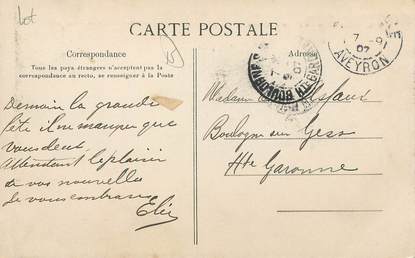 lot
CARTE POSTALE
Correspondance
Adresse
Tous les pays étrangers n'acceptent pas la
correspondance au recto, se renseigner à la Poste
15
7
07
AVEYRON
Demain la grande
fête il me manque que
vous deux
Attendant le plaisir
de vos nouvelles
Je vous embrasse
Madame
Boulogne sur Gess
Hte Garonne